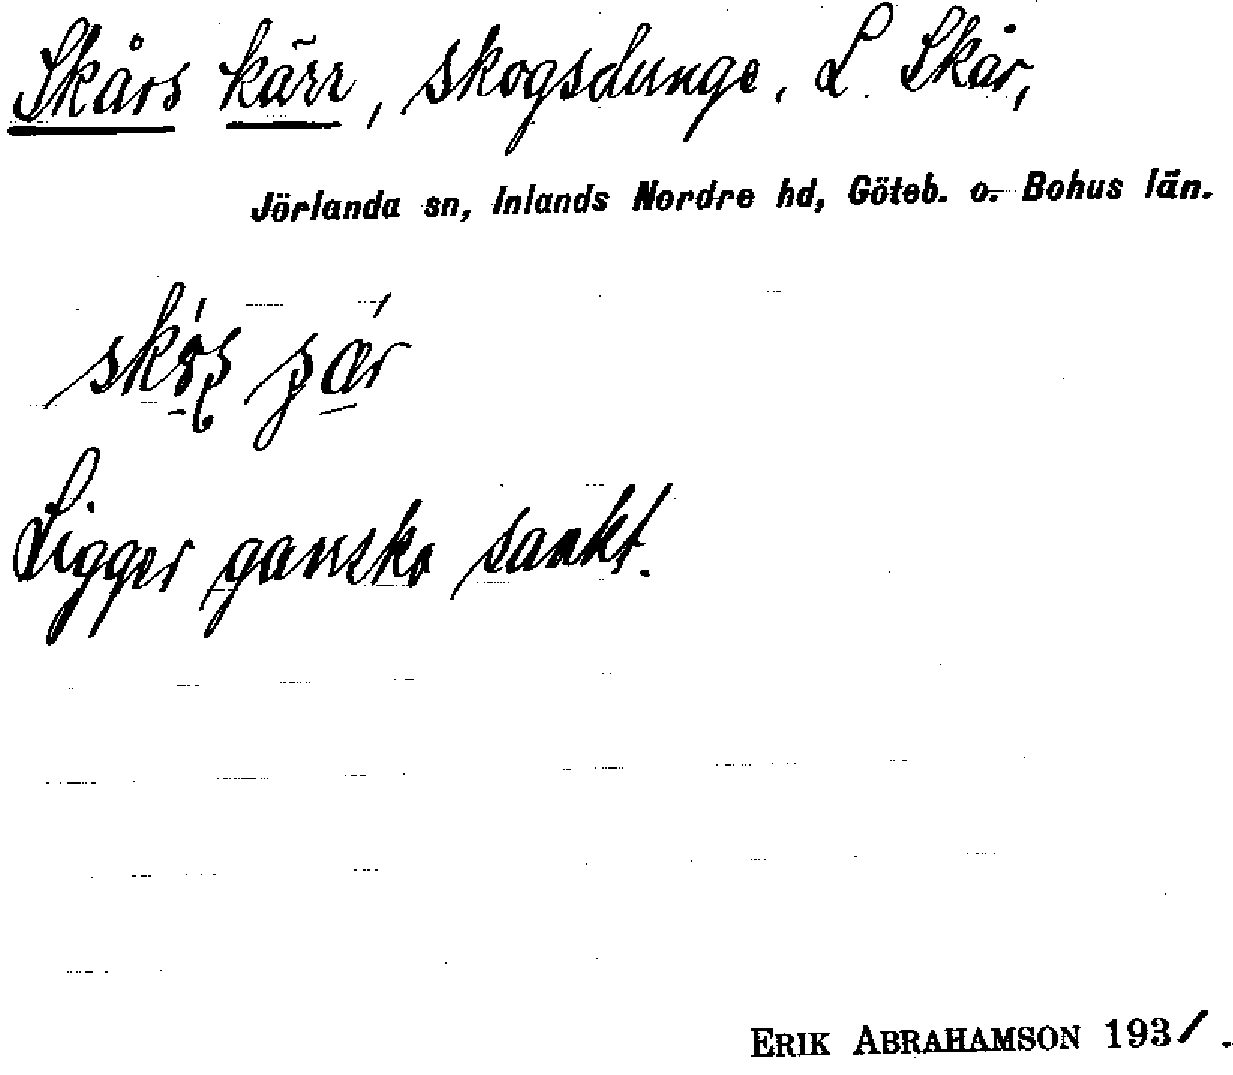 Skårs kärr, skogsdunge. L. Skår,
Jörlanda sn, Inlands Nordre hd, Göteb. o. Bohus län.
Ligger ganska sankt.
ERIK ABRAHAMSON 1931.